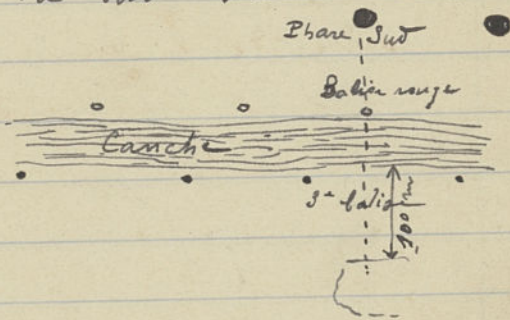 Phare Sud
Balise rouge
Canche
3e balise
100 m